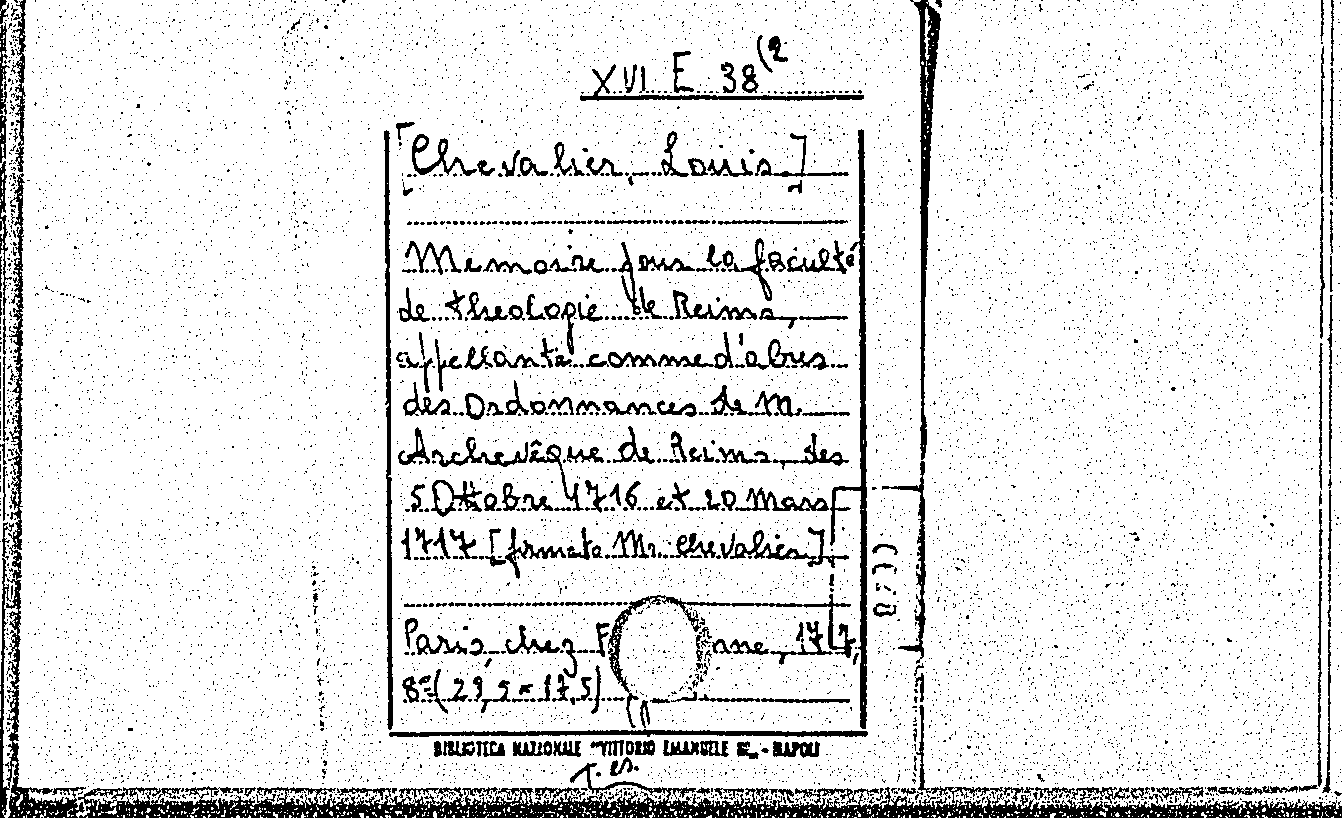 XVI E 38(2
[Chevalier, Louis.]
Memoire pour la faculté
de theologie de Reims,
appellante comme d'abus
des Ordonnances de M.
Archevêque de Reims, des
5 Ottobre 1716 et 20 Mars
1717 [firmato Mr Chevalier].
Paris, chez F nne, 1717,
8º (29,5 × 17,5)
BIBLIOTECA NAZIONALE "VITTORIO EMANUELE III" - NAPOLI
T. es.